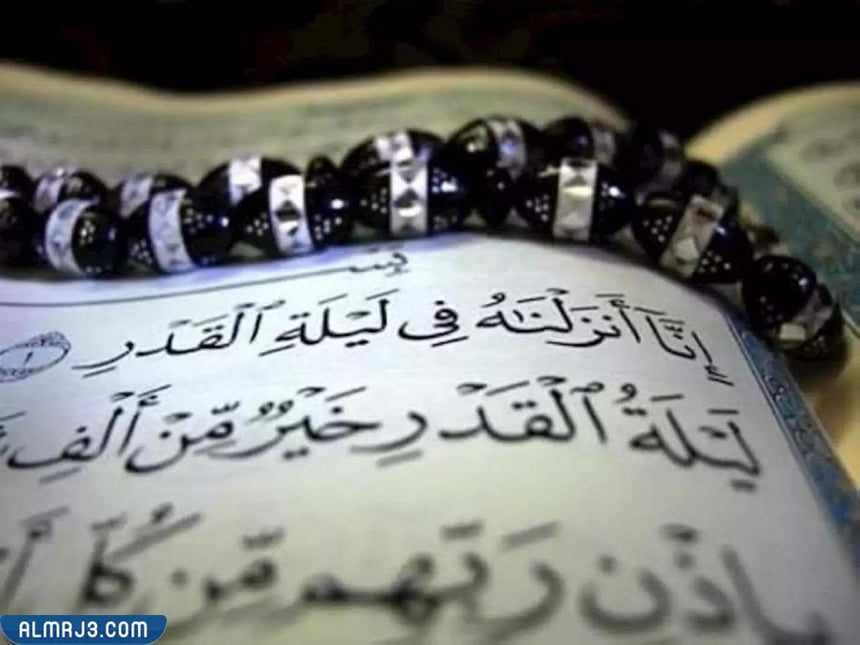 إِنَّآ أَنزَلْنَٰهُ فِى لَيْلَةِ ٱلْقَدْرِ ١
لَيْلَةُ ٱلْقَدْرِ خَيْرٌ مِّنْ أَلْفِ
بِإِذْنِ رَبِّهِم مِّن كُلِّ
ALMRJ3.COM